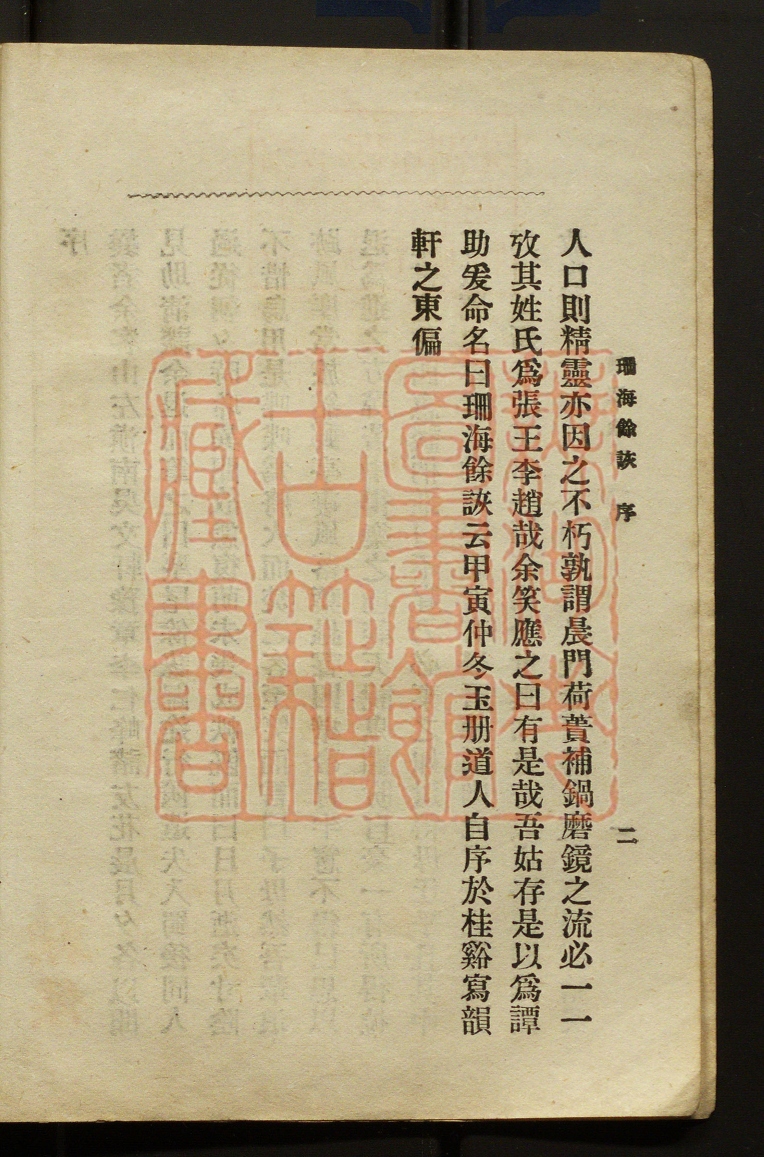 珊海餘詼　序
二
人口則精靈亦因之不朽孰謂晨門荷蕢補鍋磨鏡之流必一一
攷其姓氏爲張王李趙哉余笑應之曰有是哉吾姑存是以爲譚
助爰命名曰珊海餘詼云甲寅仲冬玉册道人自序於桂谿寫韻
軒之東偏